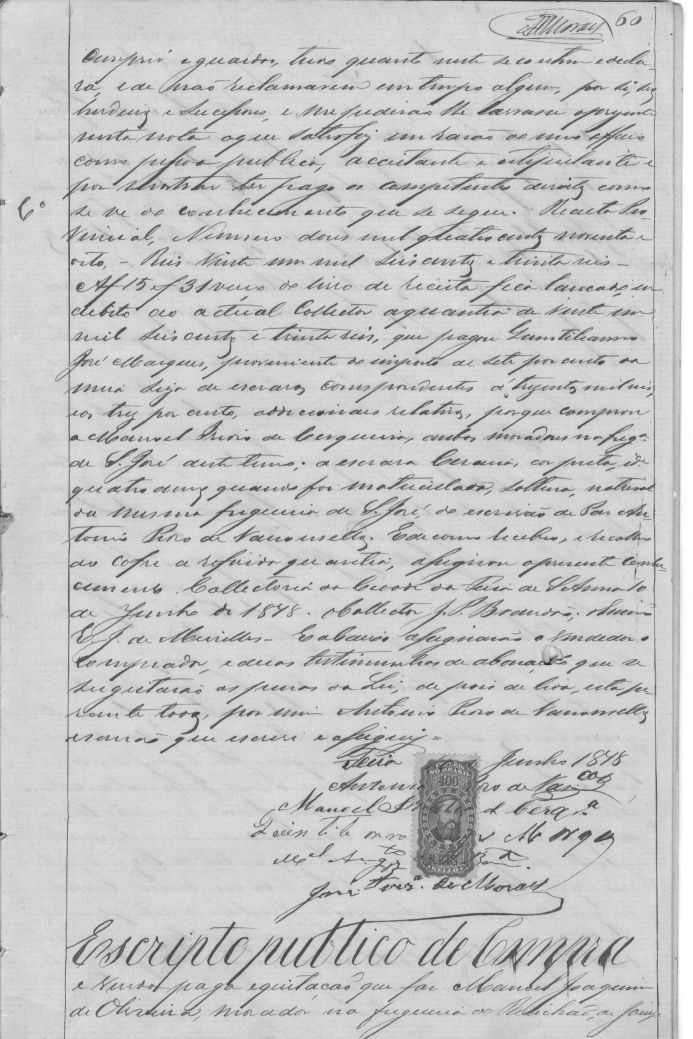 JJMoraes 60
Cumprir e guardar, tudo quanto neste se contem e decla
ra, e de não reclamarem em tempo algum, por si, seus
herdeiros e Sucessores, e me pedirão lhe lavrasse o presente
nesta nota o que satisfiz em razão de meu officio
como pessoa publica, acceitante e estipulante e
por mostrar ter pago os competentes direitos como
6º
se ve do conhecimento que se segue. Receita Pro
vincial, Numero dous mil quatro centos noventa e
oito, - Reis Vinte um mil Seis centos e trinta reis -
Af 15 of 31 verso do livro de receita fica lançado em
debito ao actual Collector a quantia de Vinte um
mil seis centos e trinta reis, que pagou Quintiliano
José Marques, proveniente do imposto de sete por cento da
meia siza de escravos correspondentes á trezentos mil reis,
e os trez por cento, addicionais relativos, porque comprou
a Manoel Pedro de Cerqueira, ambos moradores na fregª
de S. José deste termo; a escrava cor preta, de
quatro annos quando foi matriculada, solteira, natural
da mesma freguesia de S. José do escrivão de Paz An
tonio Pedro de Vasconsellos. E de como recebeu, e recolheu
ao cofre a referida quantia, assignou o presente conhe
cimento. Collectoria da Cidade da Feira de S. Anna 10
de Junho de 1878. O Collector J. P. Brandão; escrivão
E. J. de Meirelles - E abaixo assignarão o Vendedor o
Comprador, e duas testimunhas de abonação que se
sugeitarão as penas da Lei, de pois de lido, este pe
rante todos, por mim Antonio Pedro de Vasconsellos
escrivão que escrevi e assignei =
Feira Junho 1878
Antonio Pedro de Vascos
Manoel de Cerqª
Quintiliano Marques
Mel Augto
José Ferrª de Moraes
IMPERIO DO BRASIL
400
REIS
SELLO
Escripto publico de Compra
e Venda paga e quitação que faz Manoel Joaquim
de Oliveira, morador na freguesia do Riachão, de